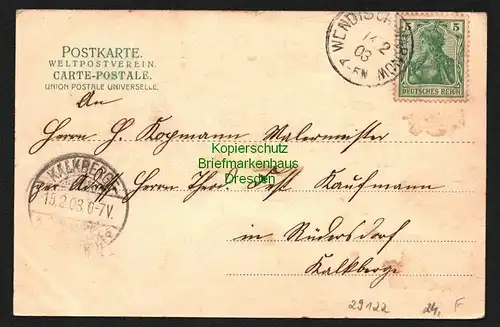 POSTKARTE.
WELTPOSTVEREIN.
CARTE-POSTALE.
UNION POSTALE UNIVERSELLE.
5 5
DEUTSCHES REICH
WENDISCH
14 2
03
7-8N
An
Herrn H. Kopmann Malermeister
Kopierschutz
Briefmarkenhaus
Dresden
zur Adr. Herrn Theod. Fest Kaufmann
KALKBERGE
15.2.03.6-7V.
in Rüdersdorf
Kalkberge
29122 24, F